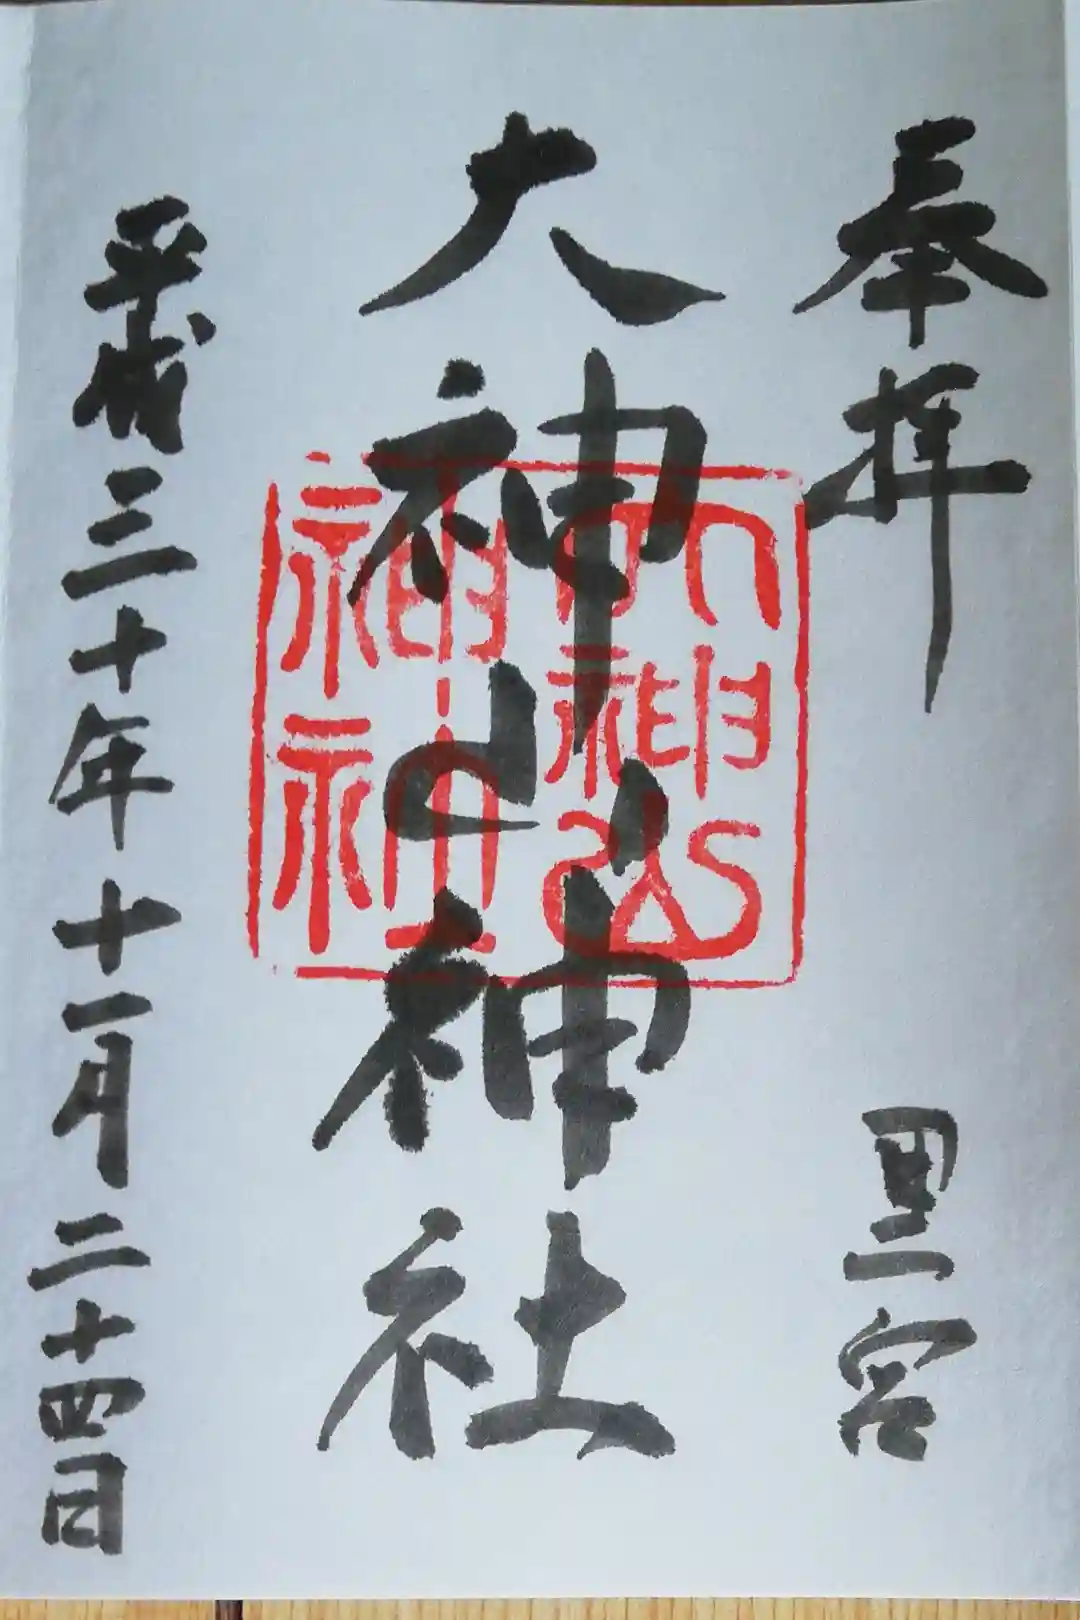 奉拝
里宮
大神山神社
大神山神社
平成三十年十一月二十四日